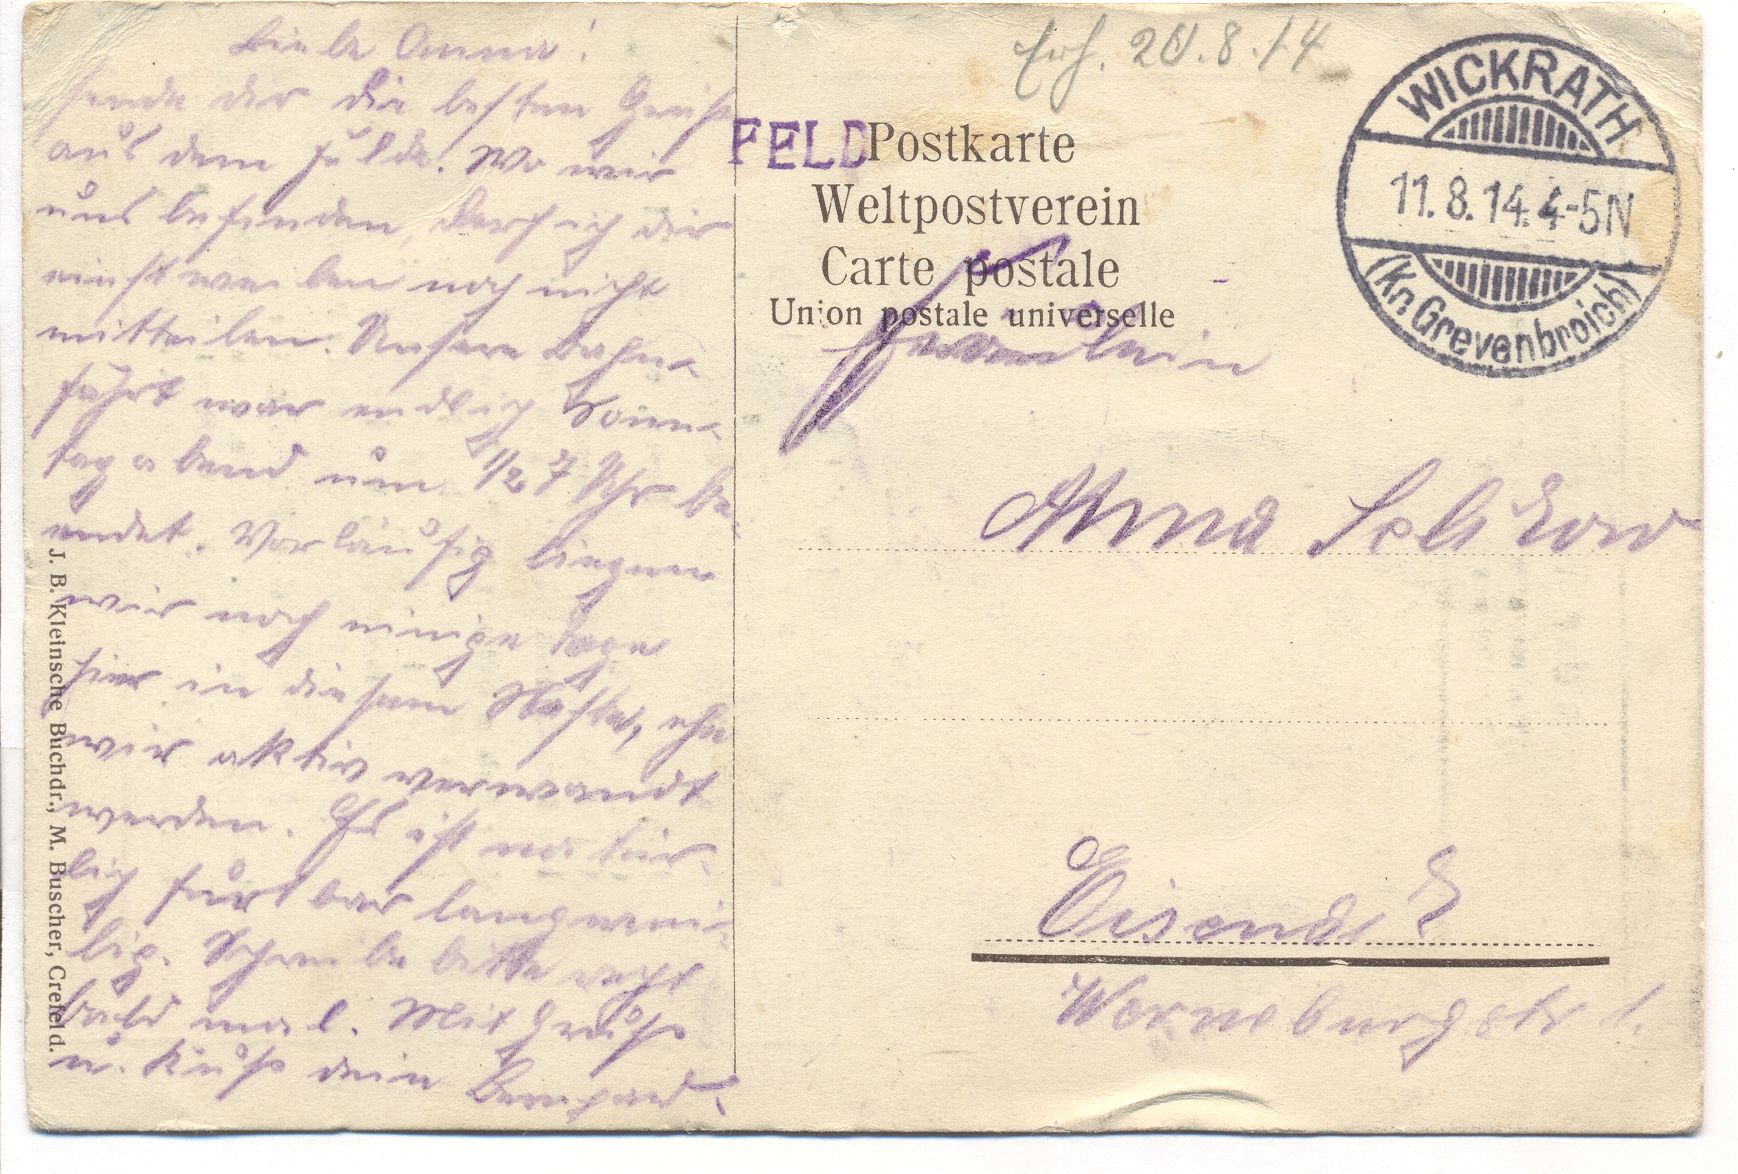 Liebe Anna!
sende dir die besten Grüße
aus dem Felde. Wo wir
uns befinden, darf ich dir
einstweilen noch nicht
mitteilen. Unsere Bahn-
fahrt war endlich Sonn-
tag abend um 1/2 7 Uhr be-
endet. Vorläufig liegen
wir noch einige Tage
hier in diesem Neste, ehe
wir aktiv verwandt
werden. Es ist natür-
lich furtbar langwei-
lig. Schreibe bitte recht
bald mal. Mit Gruß
u. Kuß dein Bernhard.
J. B. Kleinsche Buchdr., M. Buscher, Crefeld.
Erh. 20.8.14
FELD
Postkarte
Weltpostverein
Carte postale
Union postale universelle
WICKRATH
11.8.14.4-5N
(Kr. Grevenbroich)
Fräulein
Anna
Werneburgstr 1.